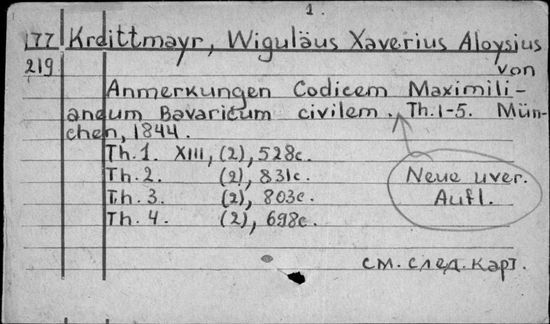 1.
177 Krdittmayr, Wiguläus Xaverius Aloysius
219 von
Anmerkungen Codicem Maximili-
aneum Bavaricum civilem. Th.1-5. Mün-
chen, 1844.
Th.1. XIII, (2), 528c.
Th.2. (2), 831c.
Th.3. (2), 803c.
Th.4. (2), 698c.
Neue uver.
Aufl.
см. след. карт.